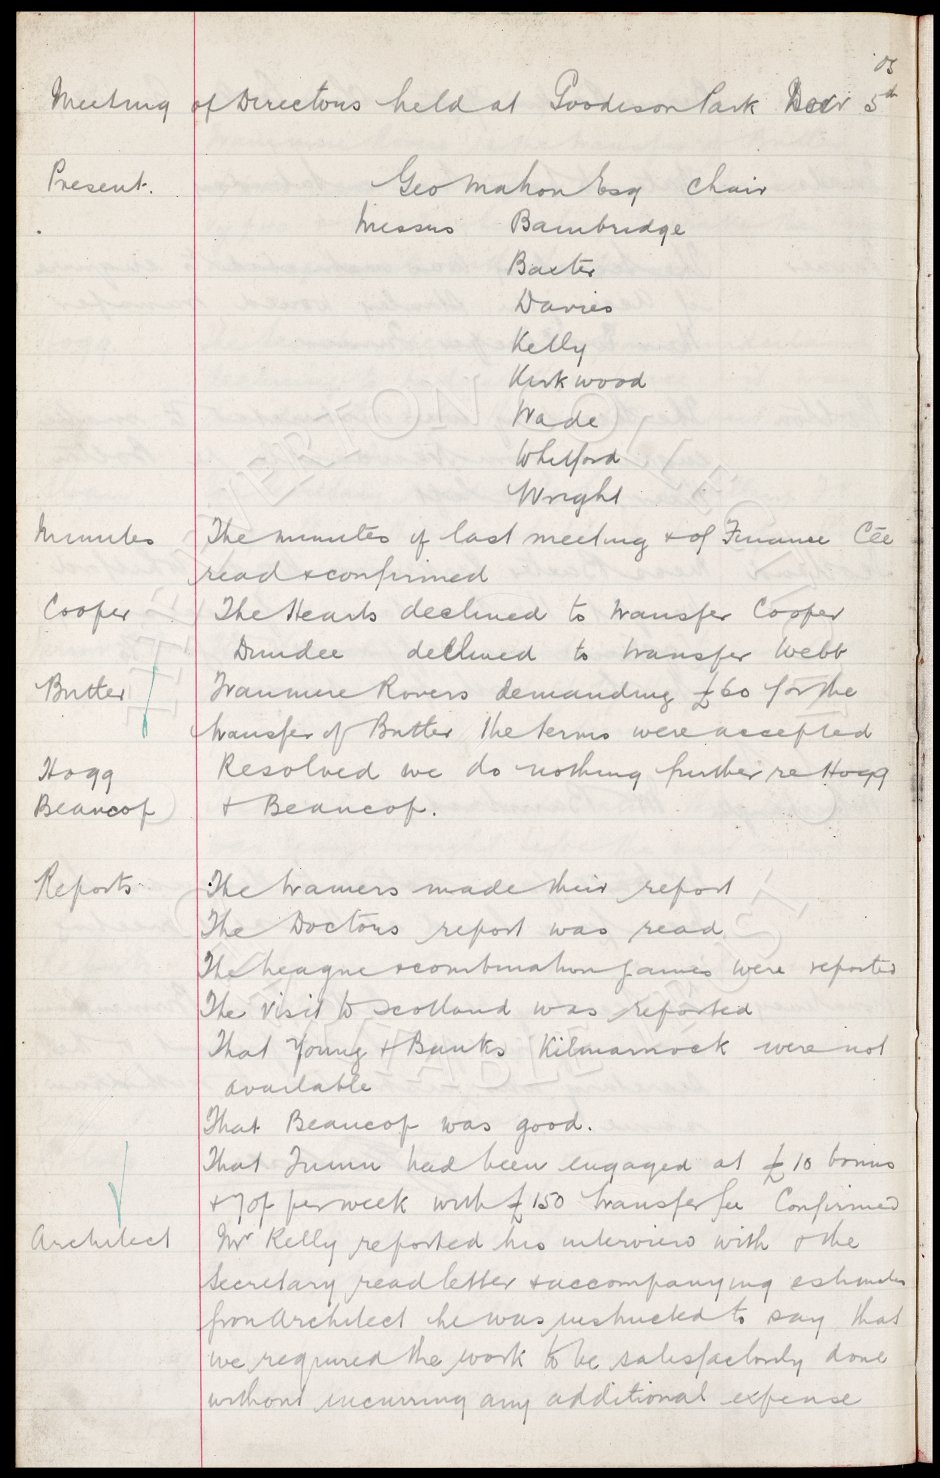 05
Meeting of Directors held at Goodison Park Decr 5th
Present. Geo Mahon Esq Chair
Messrs Bainbridge
Baxter
Davies
Kelly
Kirkwood
Wade
Whitford
Wright
Minutes The minutes of last meeting & of Finance Cee
read & confirmed
Cooper The Hearts declined to transfer Cooper
Dundee declined to transfer Webb
Butler Tranmere Rovers demanding £60 for the
transfer of Butler the terms were accepted
Hogg Resolved we do nothing further re Hogg
Beaucop & Beaucop.
Reports The trainers made their report
The Doctors report was read
The League & combination games were reported
The visit to Scotland was reported
That Young & Banks Kilmarnock were not
available
That Beaucop was good.
That had been engaged at £10 bonus
& 70/- per week with £150 transfer fee Confirmed
Architect Mr Kelly reported his interview with & the
Secretary read letter & accompanying estimates
from Architect he was instructed to say that
we required the work to be satisfactorily done
without incurring any additional expense
LIVERPOOL COLLECTION
CHARITABLE TRUST